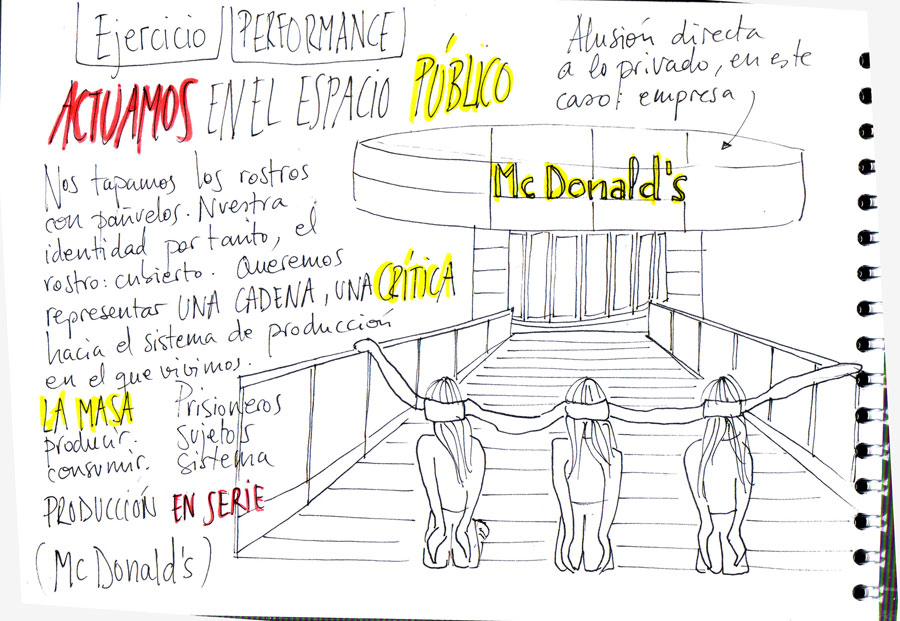 Ejercicio PERFORMANCE
ACTUAMOS EN EL ESPACIO PÚBLICO
Alusión directa
a lo privado, en este
caso: empresa
Nos tapamos los rostros
con pañuelos. Nuestra
identidad por tanto, el
rostro: cubierto. Queremos
representar UNA CADENA, UNA CRÍTICA
hacia el sistema de producción
en el que vivimos.
McDonald's
LA MASA Prisioneros
producir. Sujetos
consumir. sistema
PRODUCCIÓN EN SERIE
(McDonald's)